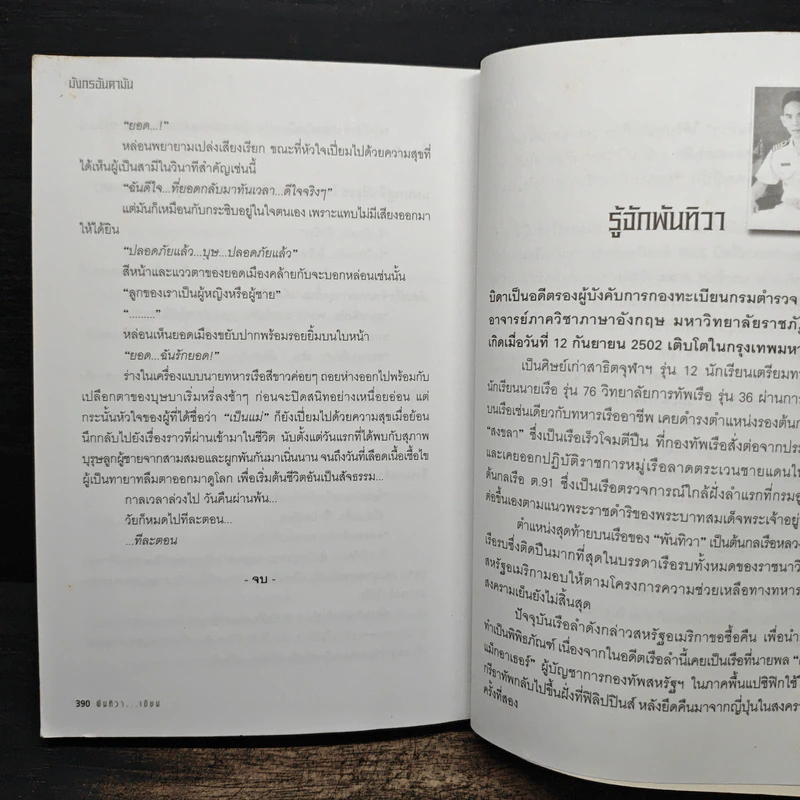 มังกรอันดามัน
“ยอด...!”
หล่อนพยายามเปล่งเสียงเรียก ขณะที่หัวใจเปี่ยมไปด้วยความสุขที่
ได้เห็นผู้เป็นสามีในวินาทีสำคัญเช่นนี้
“ฉันดีใจ...ที่ยอดกลับมาทันเวลา...ดีใจจริงๆ”
แต่มันก็เหมือนกับกระซิบอยู่ในใจตนเอง เพราะแทบไม่มีเสียงออกมา
ให้ได้ยิน
“ปลอดภัยแล้ว...บุษ...ปลอดภัยแล้ว”
สีหน้าและแววตาของยอดเมืองคล้ายกับจะบอกหล่อนเช่นนั้น
“ลูกของเราเป็นผู้หญิงหรือผู้ชาย”
“.........”
หล่อนเห็นยอดเมืองขยับปากพร้อมรอยยิ้มบนใบหน้า
“ยอด...ฉันรักยอด!”
ร่างในเครื่องแบบนายทหารเรือสีขาวค่อยๆ ถอยห่างออกไปพร้อมกับ
เปลือกตาของบุษบาเริ่มหรี่ลงช้าๆ ก่อนจะปิดสนิทอย่างเหนื่อยอ่อน แต่
กระนั้นหัวใจของผู้ที่ได้ชื่อว่า “เป็นแม่” ก็ยังเปี่ยมไปด้วยความสุขเมื่อย้อน
นึกกลับไปยังเรื่องราวที่ผ่านเข้ามาในชีวิต นับตั้งแต่วันแรกที่ได้พบกับสุภาพ
บุรุษลูกผู้ชายจากสามสมอและผูกพันกันมาเนิ่นนาน จนถึงวันที่เลือดเนื้อเชื้อไข
ผู้เป็นทายาทลืมตาออกมาดูโลก เพื่อเริ่มต้นชีวิตอันเป็นสัจธรรม...
กาลเวลาล่วงไป วันคืนผ่านพ้น...
วัยก็หมดไปทีละตอน...
...ทีละตอน
- จบ -
390 พันทิวา...เขียน
รู้จักพันทิวา
บิดาเป็นอดีตรองผู้บังคับการกองทะเบียนกรมตำรวจ
อาจารย์ภาควิชาภาษาอังกฤษ มหาวิทยาลัยราชภัฏ
เกิดเมื่อวันที่ 12 กันยายน 2502 เติบโตในกรุงเทพมหา
เป็นศิษย์เก่าสาธิตจุฬาฯ รุ่น 12 นักเรียนเตรียมทห
นักเรียนนายเรือ รุ่น 76 วิทยาลัยการทัพเรือ รุ่น 36 ผ่านการ
บนเรือเช่นเดียวกับทหารเรืออาชีพ เคยดำรงตำแหน่งรองต้นก
“สงขลา” ซึ่งเป็นเรือเร็วโจมตีปืน ที่กองทัพเรือสั่งต่อจากประ
และเคยออกปฏิบัติราชการหมู่เรือลาดตระเวนชายแดนใน
ต้นกลเรือ ต.91 ซึ่งเป็นเรือตรวจการณ์ใกล้ฝั่งลำแรกที่กรมอู่
ต่อขึ้นเองตามแนวพระราชดำริของพระบาทสมเด็จพระเจ้าอยู่
ตำแหน่งสุดท้ายบนเรือของ “พันทิวา” เป็นต้นกลเรือหลวง
เรือรบซึ่งติดปืนมากที่สุดในบรรดาเรือรบทั้งหมดของราชนาวี
สหรัฐอเมริกามอบให้ตามโครงการความช่วยเหลือทางทหาร
สงครามเย็นยังไม่สิ้นสุด
ปัจจุบันเรือลำดังกล่าวสหรัฐอเมริกาขอซื้อคืน เพื่อนำ
ทำเป็นพิพิธภัณฑ์ เนื่องจากในอดีตเรือลำนี้เคยเป็นเรือที่นายพล
แม็กอาเธอร์” ผู้บัญชาการกองทัพสหรัฐฯ ในภาคพื้นแปซิฟิกใช้
กรีธาทัพกลับไปขึ้นฝั่งที่ฟิลิปปินส์ หลังยึดคืนมาจากญี่ปุ่นในสงคร
ครั้งที่สอง